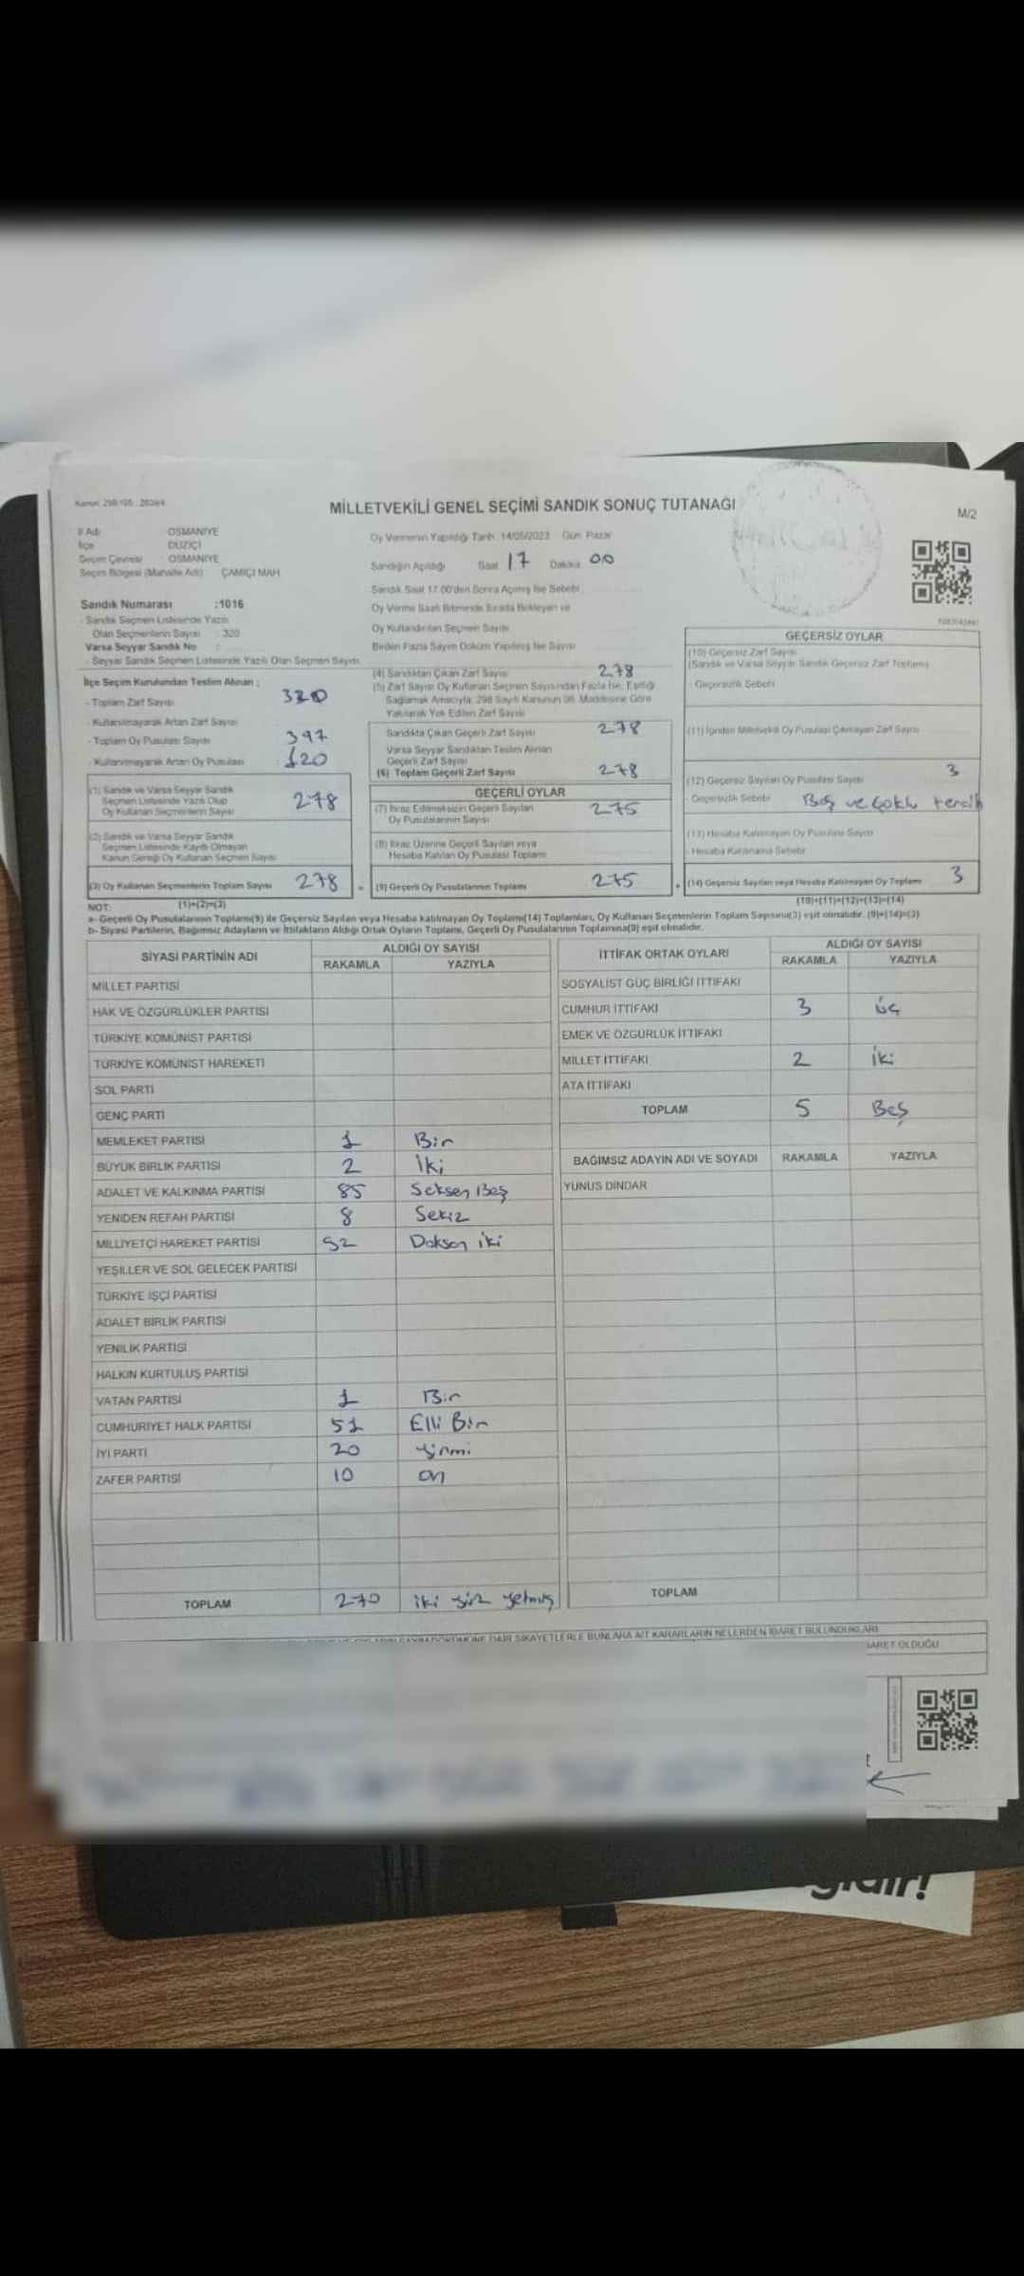 Kanun: 298/105, 2839/4
MİLLETVEKİLİ GENEL SEÇİMİ SANDIK SONUÇ TUTANAĞI
M/2
İl Adı : OSMANİYE
İlçe : DÜZİÇİ
Seçim Çevresi : OSMANİYE
Seçim Bölgesi (Mahalle Adı) : ÇAMİÇİ MAH
Sandık Numarası :1016
- Sandık Seçmen Listesinde Yazılı
Olan Seçmenlerin Sayısı : 320
Varsa Seyyar Sandık No :
- Seyyar Sandık Seçmen Listesinde Yazılı Olan Seçmen Sayısı
İlçe Seçim Kurulundan Teslim Alınan ;
- Toplam Zarf Sayısı 320
- Kullanılmayarak Artan Zarf Sayısı
- Toplam Oy Pusulası Sayısı 397
- Kullanılmayarak Artan Oy Pusulası 120
(1) Sandık ve Varsa Seyyar Sandık
Seçmen Listesinde Yazılı Olup
Oy Kullanan Seçmenlerin Sayısı 278
(2) Sandık ve Varsa Seyyar Sandık
Seçmen Listesinde Kayıtlı Olmayan
Kanun Gereği Oy Kullanan Seçmen Sayısı
(3) Oy Kullanan Seçmenlerin Toplam Sayısı 278
(1)+(2)=(3)
Oy Vermenin Yapıldığı Tarih: 14/05/2023 Gün: Pazar
Sandığın Açıldığı Saat 17 Dakika 00
Sandık Saat 17.00'den Sonra Açılmış İse Sebebi
Oy Verme Saati Bitiminde Sırada Bekleyen ve
Oy Kullandırılan Seçmen Sayısı
Birden Fazla Sayım Döküm Yapılmış İse Sayısı
(4) Sandıktan Çıkan Zarf Sayısı 278
(5) Zarf Sayısı Oy Kullanan Seçmen Sayısından Fazla İse, Eşitliği
Sağlamak Amacıyla, 298 Sayılı Kanunun 98. Maddesine Göre
Yakılarak Yok Edilen Zarf Sayısı
Sandıkta Çıkan Geçerli Zarf Sayısı 278
Varsa Seyyar Sandıktan Teslim Alınan
Geçerli Zarf Sayısı
(6) Toplam Geçerli Zarf Sayısı 278
GEÇERLİ OYLAR
(7) İtiraz Edilmeksizin Geçerli Sayılan
Oy Pusulalarının Sayısı 275
(8) İtiraz Üzerine Geçerli Sayılan veya
Hesaba Katılan Oy Pusulası Toplamı
= (9) Geçerli Oy Pusulalarının Toplamı 275
GEÇERSİZ OYLAR
(10) Geçersiz Zarf Sayısı
(Sandık ve Varsa Seyyar Sandık Geçersiz Zarf Toplamı)
- Geçersizlik Sebebi
(11) İçinden Milletvekili Oy Pusulası Çıkmayan Zarf Sayısı
(12) Geçersiz Sayılan Oy Pusulası Sayısı 3
- Geçersizlik Sebebi Boş ve çoklu tercih
(13) Hesaba Katılmayan Oy Pusulası Sayısı
- Hesaba Katılmama Sebebi
+ (14) Geçersiz Sayılan veya Hesaba Katılmayan Oy Toplamı 3
(10)+(11)+(12)+(13)=(14)
NOT:
a- Geçerli Oy Pusulalarının Toplamı(9) ile Geçersiz Sayılan veya Hesaba katılmayan Oy Toplamı(14) Toplamları, Oy Kullanan Seçmenlerin Toplam Sayısına(3) eşit olmalıdır. (9)+(14)=(3)
b- Siyasi Partilerin, Bağımsız Adayların ve İttifakların Aldığı Ortak Oyların Toplamı, Geçerli Oy Pusulalarının Toplamına(9) eşit olmalıdır.
SİYASİ PARTİNİN ADI ALDIĞI OY SAYISI
RAKAMLA YAZIYLA
MİLLET PARTİSİ
HAK VE ÖZGÜRLÜKLER PARTİSİ
TÜRKİYE KOMÜNİST PARTİSİ
TÜRKİYE KOMÜNİST HAREKETİ
SOL PARTİ
GENÇ PARTİ
MEMLEKET PARTİSİ 1 Bir
BÜYÜK BİRLİK PARTİSİ 2 İki
ADALET VE KALKINMA PARTİSİ 85 Seksen Beş
YENİDEN REFAH PARTİSİ 8 Sekiz
MİLLİYETÇİ HAREKET PARTİSİ 92 Doksan iki
YEŞİLLER VE SOL GELECEK PARTİSİ
TÜRKİYE İŞÇİ PARTİSİ
ADALET BİRLİK PARTİSİ
YENİLİK PARTİSİ
HALKIN KURTULUŞ PARTİSİ
VATAN PARTİSİ 1 Bir
CUMHURİYET HALK PARTİSİ 51 Elli Bir
İYİ PARTİ 20 yirmi
ZAFER PARTİSİ 10 on
TOPLAM 270 iki yüz yetmiş
İTTİFAK ORTAK OYLARI ALDIĞI OY SAYISI
RAKAMLA YAZIYLA
SOSYALİST GÜÇ BİRLİĞİ İTTİFAKI
CUMHUR İTTİFAKI 3 üç
EMEK VE ÖZGÜRLÜK İTTİFAKI
MİLLET İTTİFAKI 2 iki
ATA İTTİFAKI
TOPLAM 5 Beş
BAĞIMSIZ ADAYIN ADI VE SOYADI RAKAMLA YAZIYLA
YUNUS DİNDAR
TOPLAM
DAİR ŞİKAYETLERLE BUNLARA AİT KARARLARIN NELERDEN İBARET BULUNDUKLARI
İBARET OLDUĞU